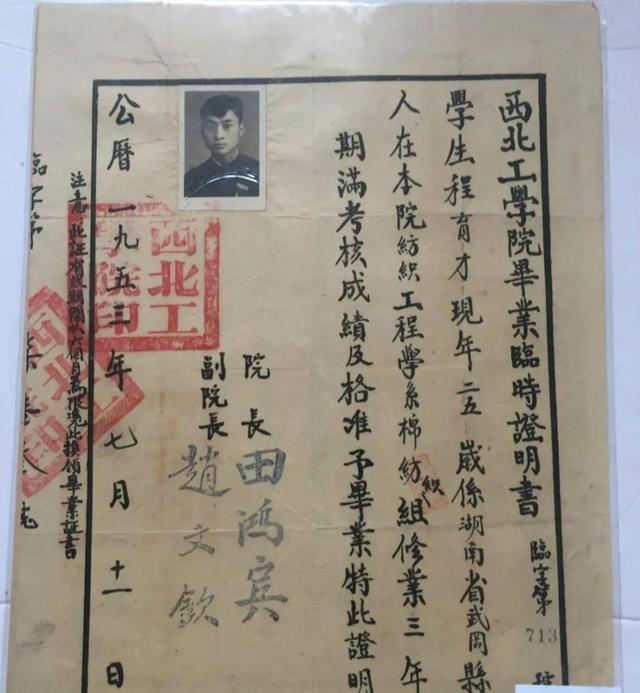 西北工學院畢業臨時證明書
臨字第713號
學生程育才現年二五歲係湖南省武岡縣
人在本院紡織工程學系棉紡織組修業三年
期滿考核成績及格准予畢業特此證明
院長田鴻賓
副院長趙文欽
西北工學院印
公曆一九五三年七月十一日
注意此証有效期間以六個月為限憑此換領畢業証書
臨字第